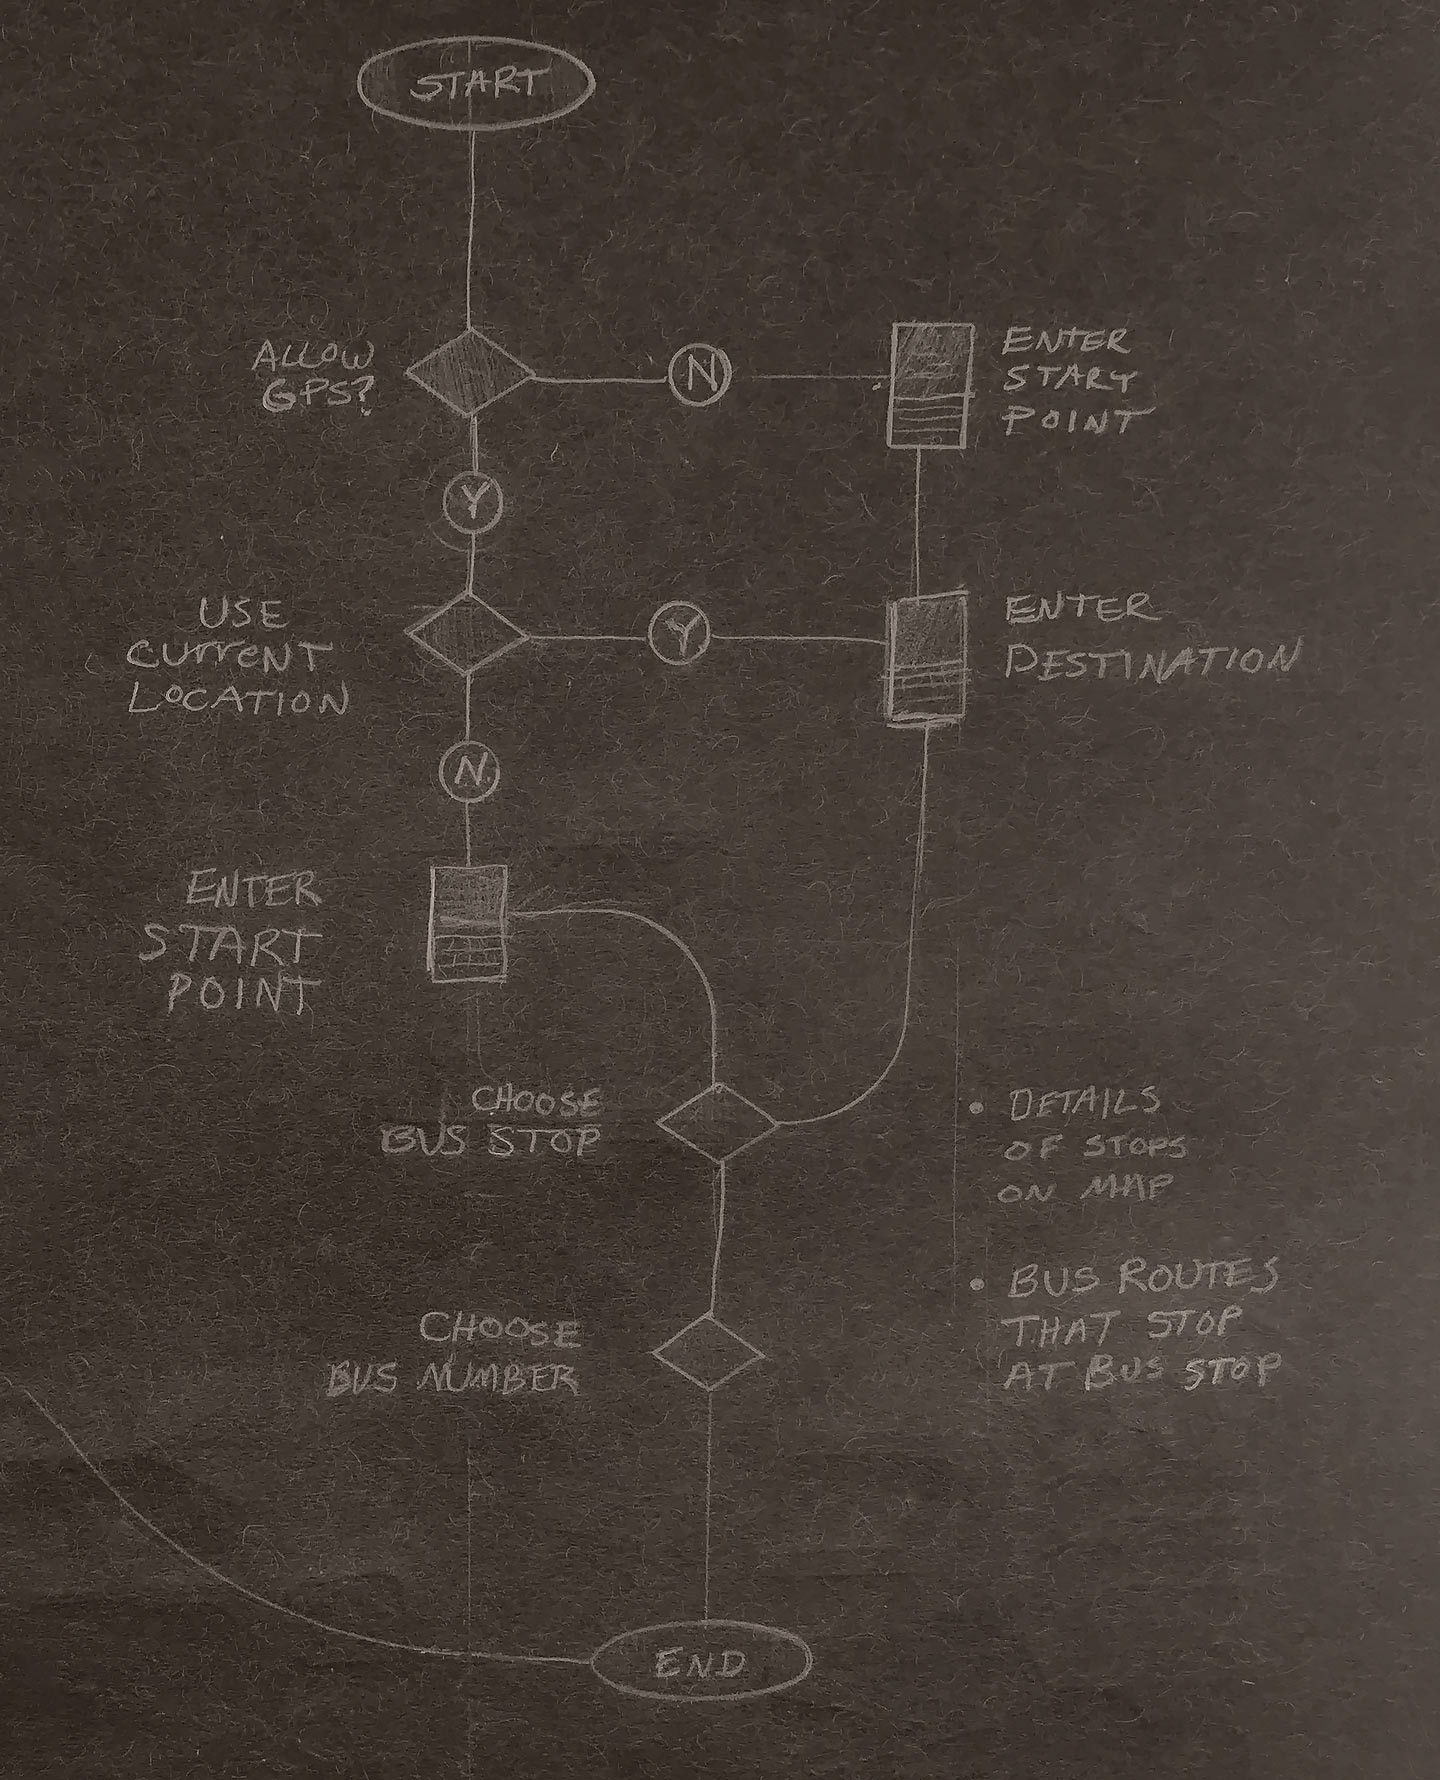 START
ALLOW
GPS?
N
ENTER
START
POINT
Y
USE
CURRENT
LOCATION
Y
ENTER
DESTINATION
N
ENTER
START
POINT
CHOOSE
BUS STOP
• DETAILS
OF STOPS
ON MAP
• BUS ROUTES
THAT STOP
AT BUS STOP
CHOOSE
BUS NUMBER
END